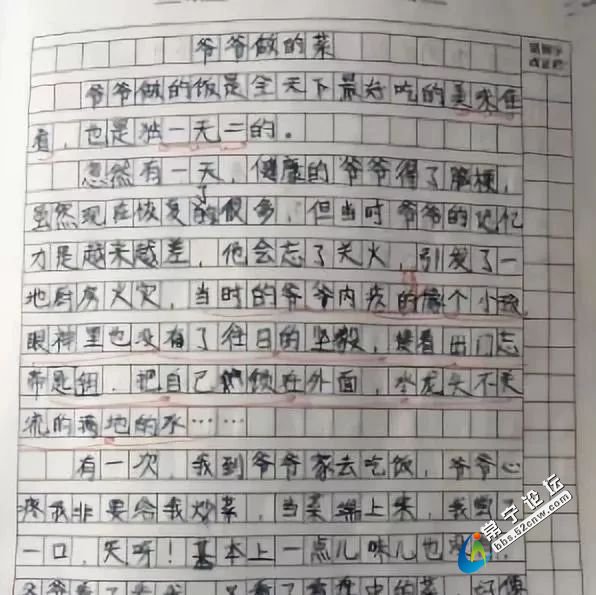 爷爷做的菜
爷爷做的饭是全天下最好吃的美味佳
肴，也是独一无二的。
忽然有一天，健康的爷爷得了脑梗，
虽然现在恢复了很多，但当时爷爷的记忆
力是越来越差，他会忘了关火，引发了一
地厨房火灾，当时的爷爷内疚的像个小孩，
眼神里也没有了往日的坚毅，接着出门忘
带匙钥，把自己锁在外面，水龙头不关
流的满地的水……
有一次，我到爷爷家去吃饭，爷爷心
疼我非要给我炒菜，当菜端上来，我尝了
一口，天呀！基本上一点儿味儿也没
常宁论坛
bbs.52cnw.com